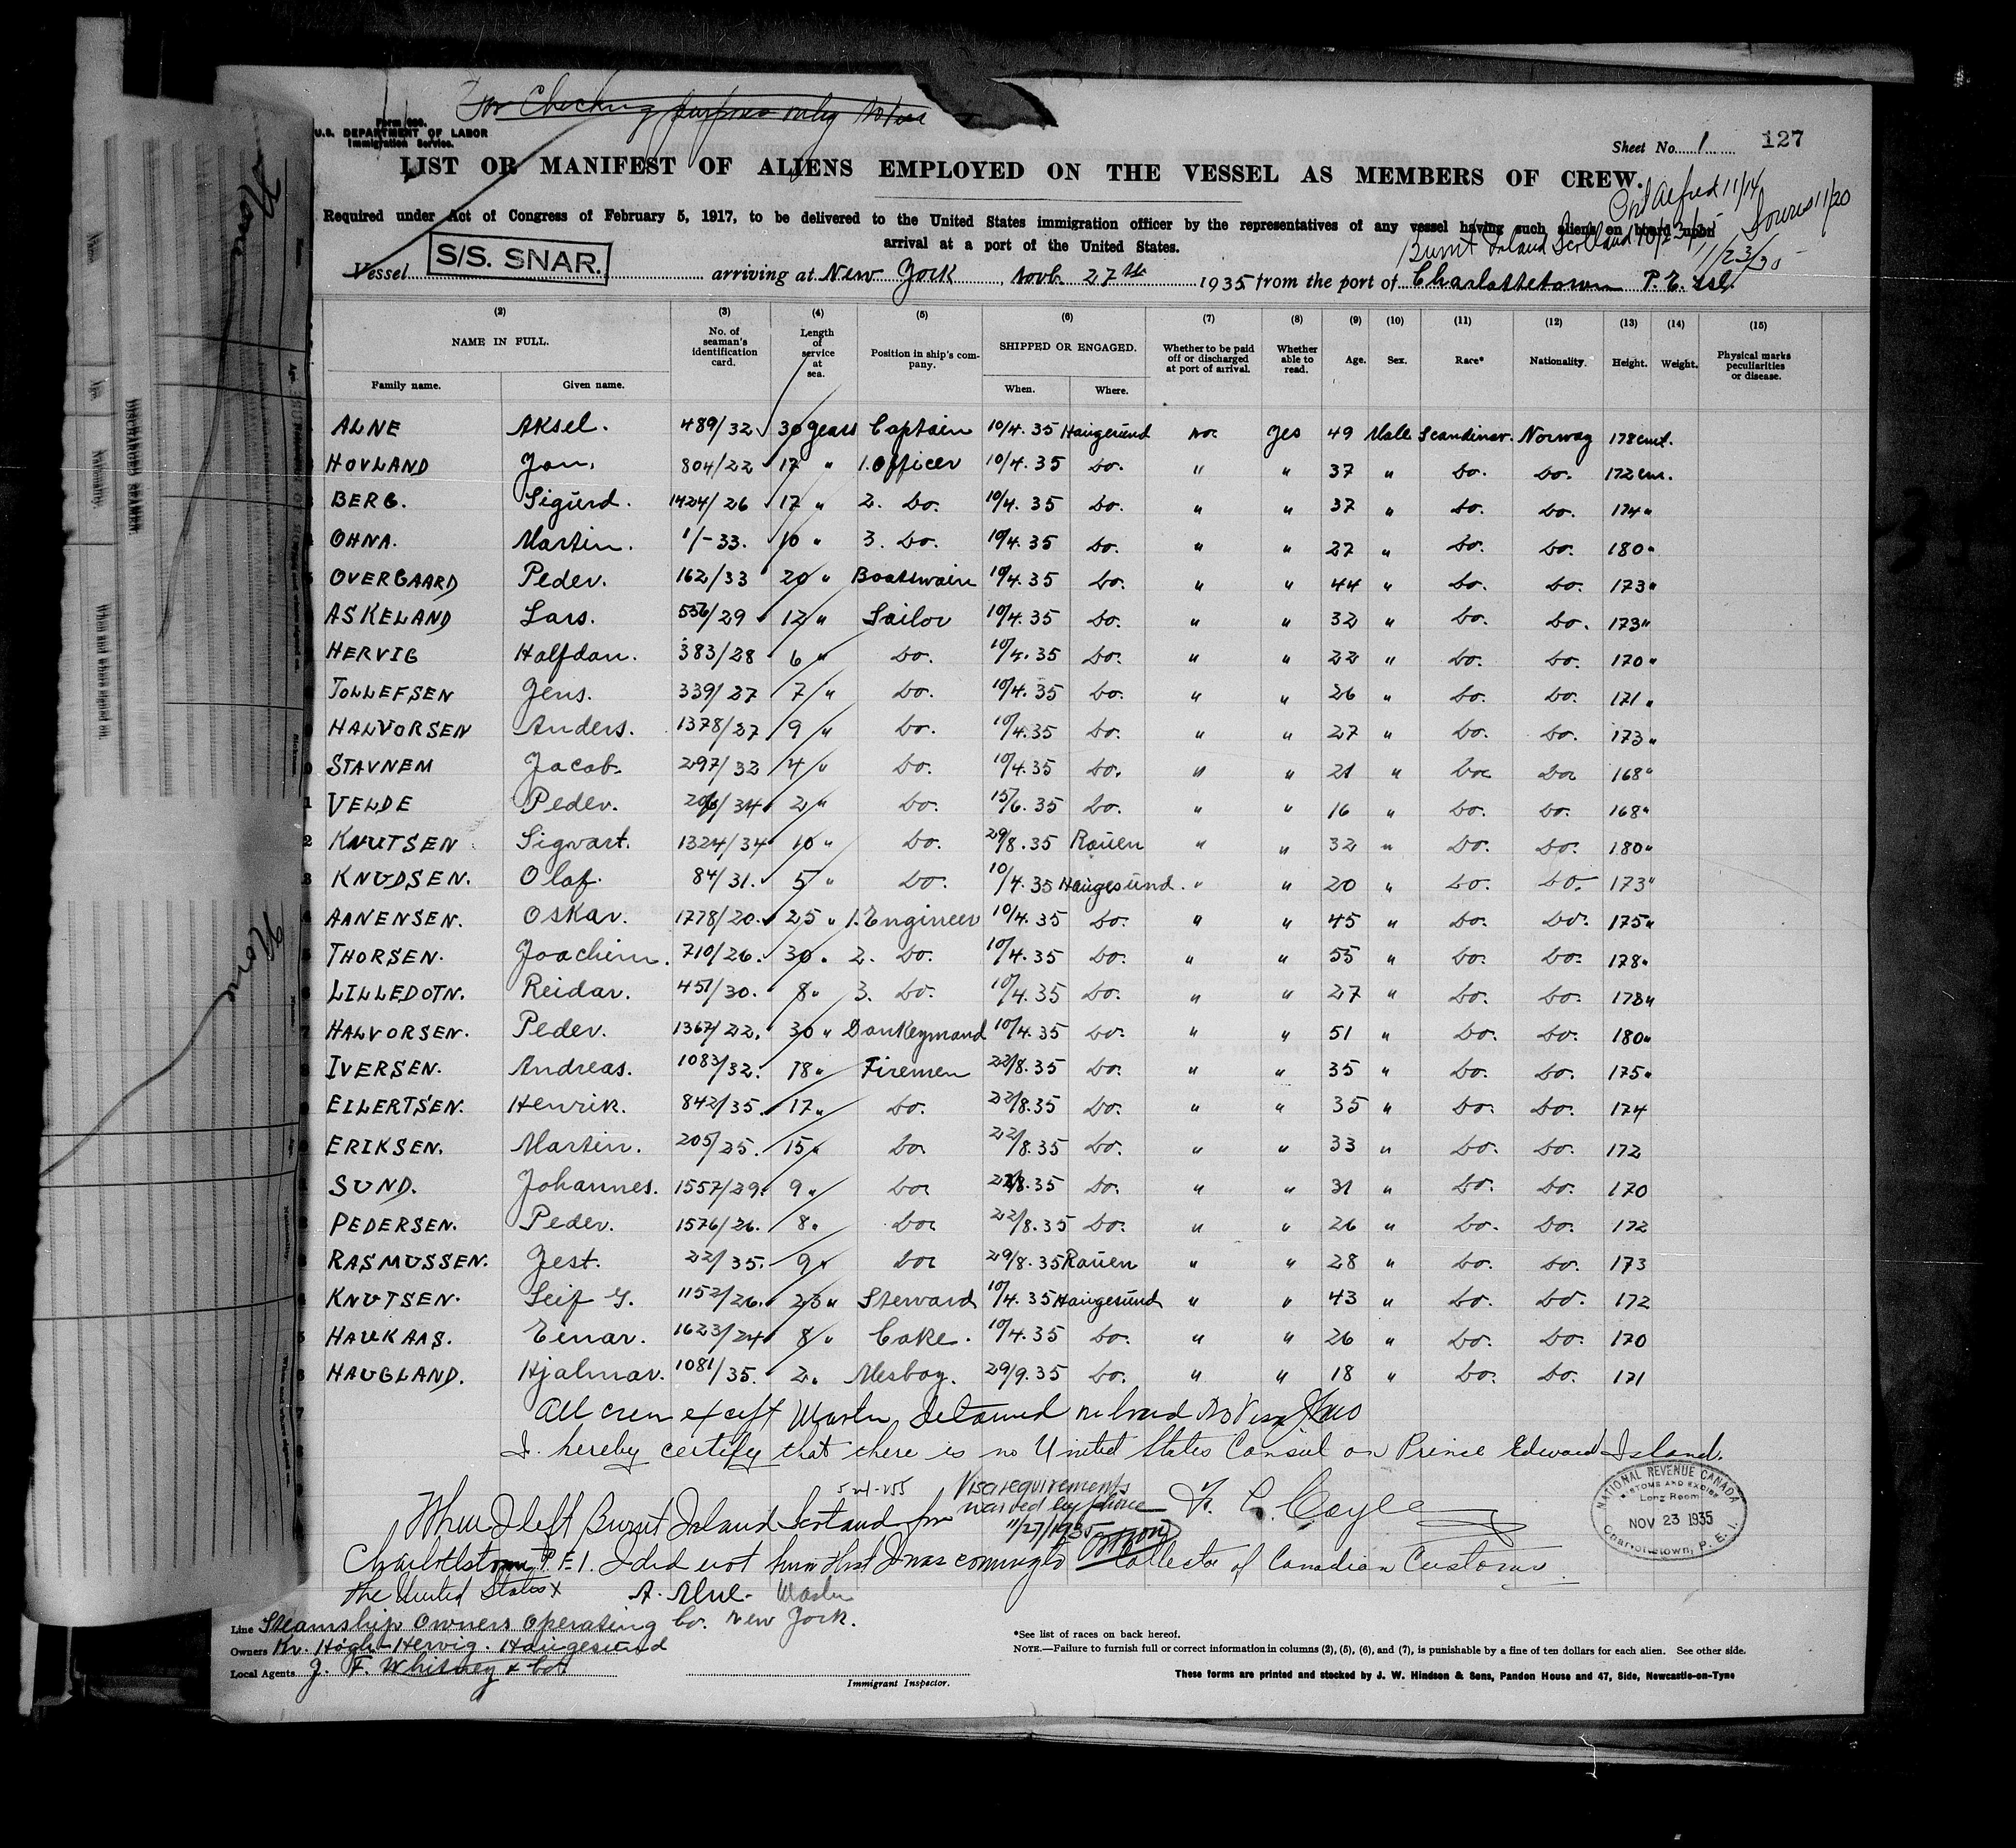 For Checking purposes only
Form 680.
U.S. DEPARTMENT OF LABOR
Immigration Service.
Sheet No. 1
127
LIST OR MANIFEST OF ALIENS EMPLOYED ON THE VESSEL AS MEMBERS OF CREW.
Port Alfred 11/14
Souris 11/20
Required under Act of Congress of February 5, 1917, to be delivered to the United States immigration officer by the representatives of any vessel having such aliens on board upon
arrival at a port of the United States.
Burnt Island Scotland 10/23/35
11/23/35
Vessel S/S. SNAR. arriving at New York, Novb. 27th 1935 from the port of Charlottetown P.E. Isl.
(2) (3) (4) (5) (6) (7) (8) (9) (10) (11) (12) (13) (14) (15)
NAME IN FULL. No. of seaman's identification card. Length of service at sea. Position in ship's company. SHIPPED OR ENGAGED. Whether to be paid off or discharged at port of arrival. Whether able to read. Age. Sex. Race* Nationality. Height. Weight. Physical marks peculiarities or disease.
Family name. Given name. When. Where.
ALNE Aksel. 489/32 30 years Captain 10/4.35 Haugesund no. yes 49 Male Scandinav. Norway 178 cmt.
HOVLAND Jon. 804/22 17 " 1.Officer 10/4.35 Do. " " 37 " Do. Do. 172 cm.
BERG. Sigurd. 1424/26 17 " 2. Do. 10/4.35 Do. " " 37 " Do. Do. 174 "
OHNA. Martin. 1/-33. 10 " 3. Do. 10/4.35 Do. " " 27 " Do. Do. 180 "
OVERGAARD Peder. 162/33 20 " Boatswain 10/4.35 Do. " " 44 " Do. Do. 173 "
ASKELAND Lars. 536/29 12 " Sailor 10/4.35 Do. " " 32 " Do. Do. 173 "
HERVIG Halfdan. 383/28 6 " Do. 10/4.35 Do. " " 22 " Do. Do. 170 "
TOLLEFSEN Jens. 339/27 7 " Do. 10/4.35 Do. " " 26 " Do. Do. 171 "
HALVORSEN Anders. 1378/27 9 " Do. 10/4.35 Do. " " 27 " Do. Do. 173 "
STAVNEM Jacob. 297/32 4 " Do. 10/4.35 Do. " " 21 " Do Do 168 "
VELDE Peder. 206/34 2 " Do. 15/6.35 Do. " " 16 " Do. Do. 168 "
KNUTSEN Sigvart. 1324/34 10 " Do. 29/8.35 Rouen " " 32 " Do. Do. 180 "
KNUDSEN. Olaf. 84/31. 5 " Do. 10/4.35 Haugesund. " " 20 " Do. Do. 173 "
AANENSEN. Oskar. 1778/20. 25 " 1.Engineer 10/4.35 Do. " " 45 " Do. Do. 175 "
THORSEN. Joachim. 710/26. 30 " 2. Do. 10/4.35 Do. " " 55 " Do. Do. 178 "
LILLEDOTN. Reidar. 451/30. 8 " 3. Do. 10/4.35 Do. " " 27 " Do. Do. 178 "
HALVORSEN. Peder. 1367/22. 30 " Donkeymand 10/4.35 Do. " " 51 " Do. Do. 180 "
IVERSEN. Andreas. 1083/32. 18 " Firemen 22/8.35 Do. " " 35 " Do. Do. 175 "
EILERTSEN. Henrik. 842/35. 17 " Do. 22/8.35 Do. " " 35 " Do. Do. 174
ERIKSEN. Martin. 205/25. 15 " Do 22/8.35 Do. " " 33 " Do. Do. 172
SUND. Johannes. 1557/29. 9 " Do 22/8.35 Do. " " 31 " Do. Do. 170
PEDERSEN. Peder. 1576/26. 8 " Do 22/8.35 Do. " " 26 " Do. Do. 172
RASMUSSEN. Gest. 22/35. 9 " Do 29/8.35 Rouen " " 28 " Do. Do. 173
KNUTSEN. Leif G. 1152/26. 23 " Steward 10/4.35 Haugesund " " 43 " Do. Do. 172
HAUKAAS. Einar. 1623/24 8 " Coke. 10/4.35 Do. " " 26 " Do. Do. 170
HAUGLAND. Hjalmar. 1081/35. 2 " Mesboy. 29/9.35 Do. " " 18 " Do. Do. 171
All crew except Master detained on board no visa
I hereby certify that there is no United States Consul on Prince Edward Island.
Visa requirements
waived by phone
11/27/1935
When I left Burnt Island Scotland for
Charlottetown P.E.I. I did not know that I was coming to
the United States
A. Alne. Master
Collector of Canadian Customs
NATIONAL REVENUE CANADA
CUSTOMS AND EXCISE
Long Room
NOV 23 1935
Charlottetown, P. E. I.
Line Steamship Owners Operating Co. New York.
Owners Kr. Høgh-Hervig. Haugesund
Local Agents J. F. Whitney & Co
Immigrant Inspector.
*See list of races on back hereof.
NOTE.—Failure to furnish full or correct information in columns (2), (5), (6), and (7), is punishable by a fine of ten dollars for each alien. See other side.
These forms are printed and stocked by J. W. Hindson & Sons, Pandon House and 47, Side, Newcastle-on-Tyne
None
None